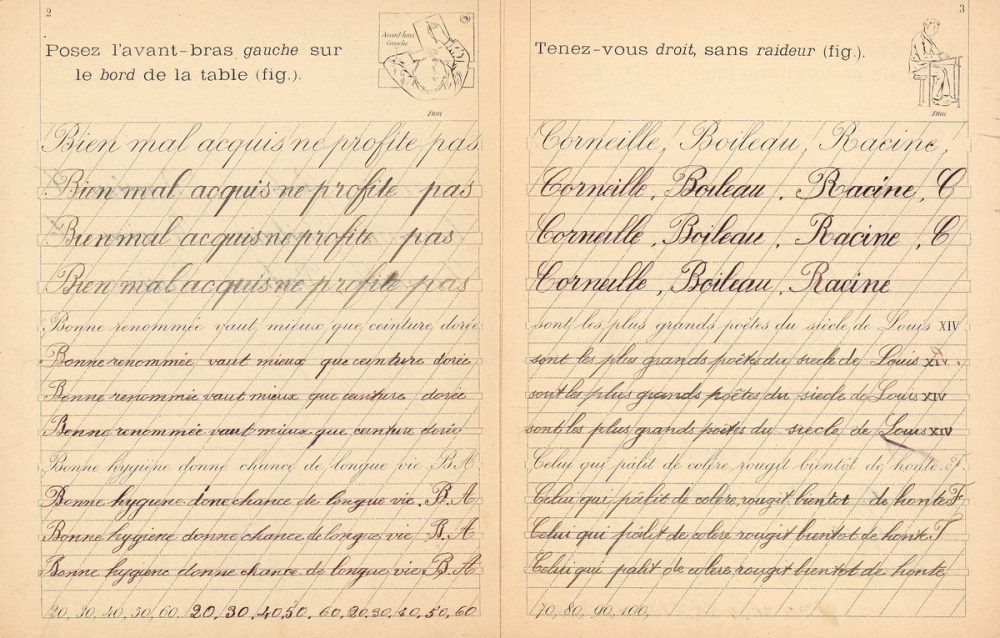 2
Posez l'avant-bras gauche sur
le bord de la table (fig.).
Avant-bras
Gauche
Bien mal acquis ne profite pas.
Bien mal acquis ne profite pas
Bien mal acquis ne profite pas
Bien mal acquis ne profite pas
Bonne renommée vaut mieux que ceinture dorée
Bonne renommée vaut mieux que ceinture dorée
Bonne renommée vaut mieux que ceinture dorée
Bonne renommée vaut mieux que ceinture dorée
Bonne hygiène donne chance de longue vie. B. A
Bonne hygiene done chance de longue vie. B. A
Bonne hygiene donne chance de longue vie B. A
Bonne hygiene donne chance de longue vie. B. A
20, 30, 40, 50, 60. 20, 30, 40, 50, 60, 20, 30, 40, 50, 60
3
Tenez-vous droit, sans raideur (fig.).
Corneille, Boileau, Racine,
Corneille, Boileau, Racine, C
Corneille, Boileau, Racine, C
Corneille, Boileau, Racine
sont les plus grands poètes du siècle de Louis XIV
sont les plus grands poètes du siecle de Louis XIV.
sont les plus grands poètes du siecle de Louis XIV
sont les plus grands poètes du siecle de Louis XIV
Celui qui pâlit de colère, rougit bientôt de honte. F.
Celui qui pâlit de colère, rougit bientot de honte F
Celui qui pâlit de colere rougit bientot de honte. F
Celui qui palit de colère, rougit bientot de honte,
70, 80, 90, 100,